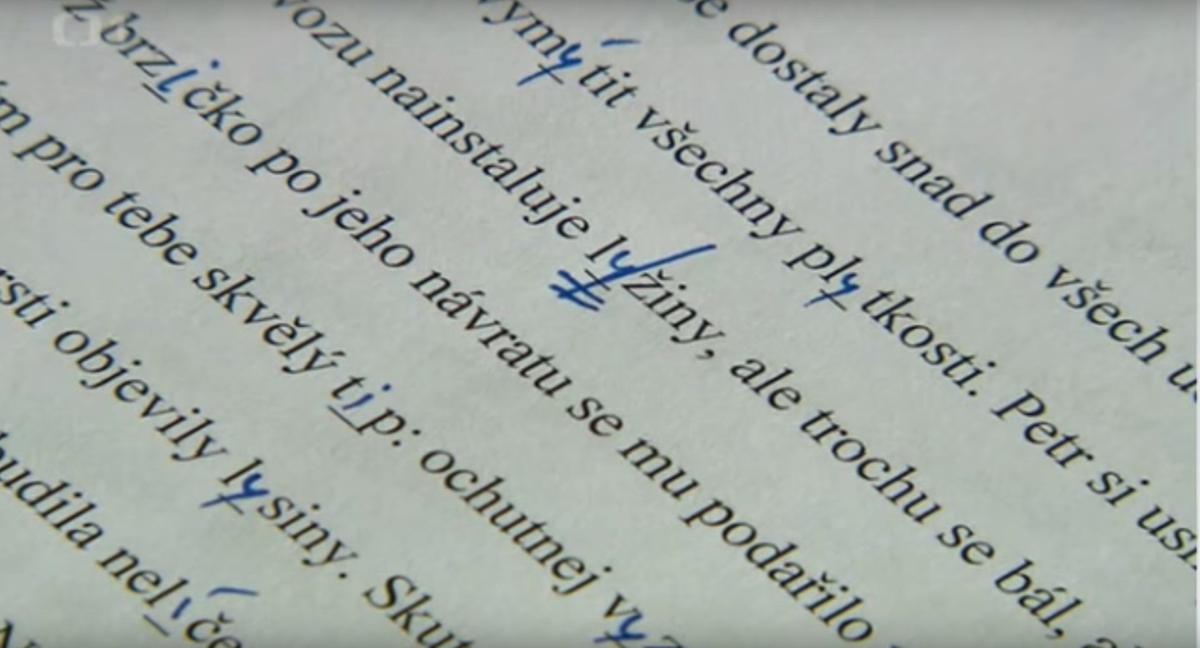 dostaly snad do všech
vymýtit všechny plytkosti. Petr si
vozu nainstaluje lyžiny, ale trochu se bál,
brzičko po jeho návratu se mu podařilo
pro tebe skvělý tip: ochutnej
objevily lysiny. Skut
budila nelíče